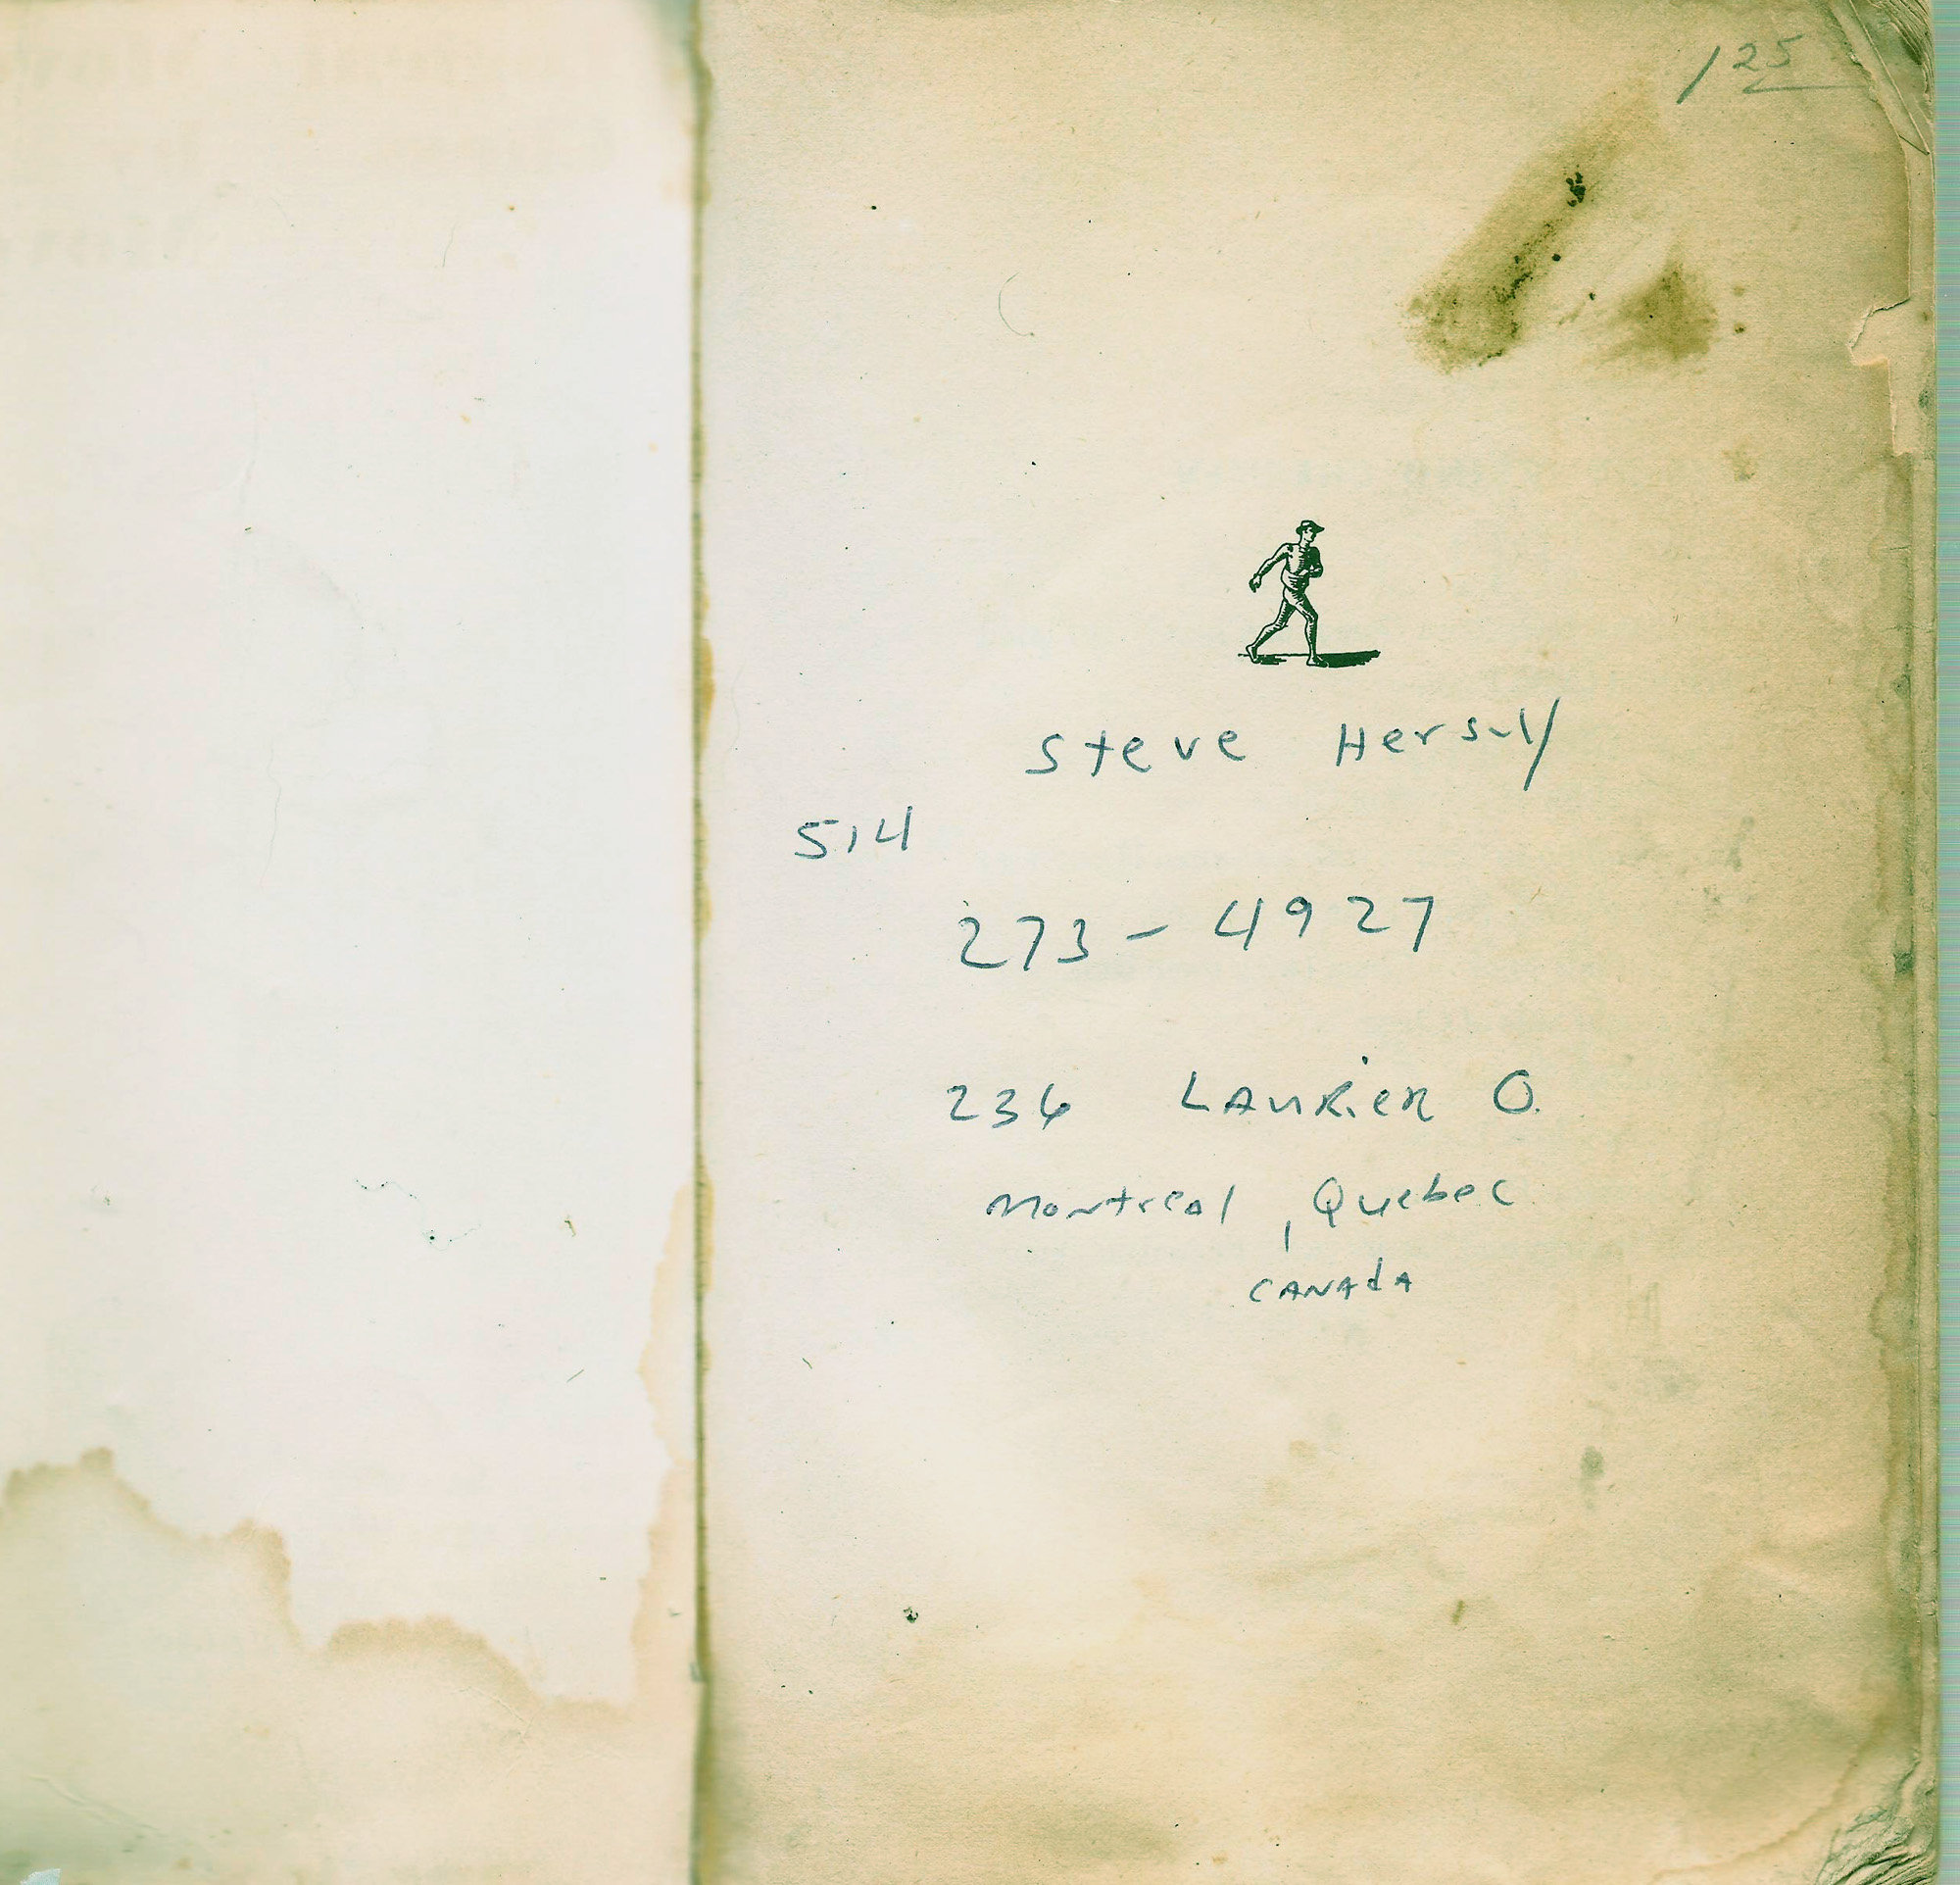 1 25
Steve
514
273 - 4927
236 LAURiER O.
Montreal, Quebec
CANAdA